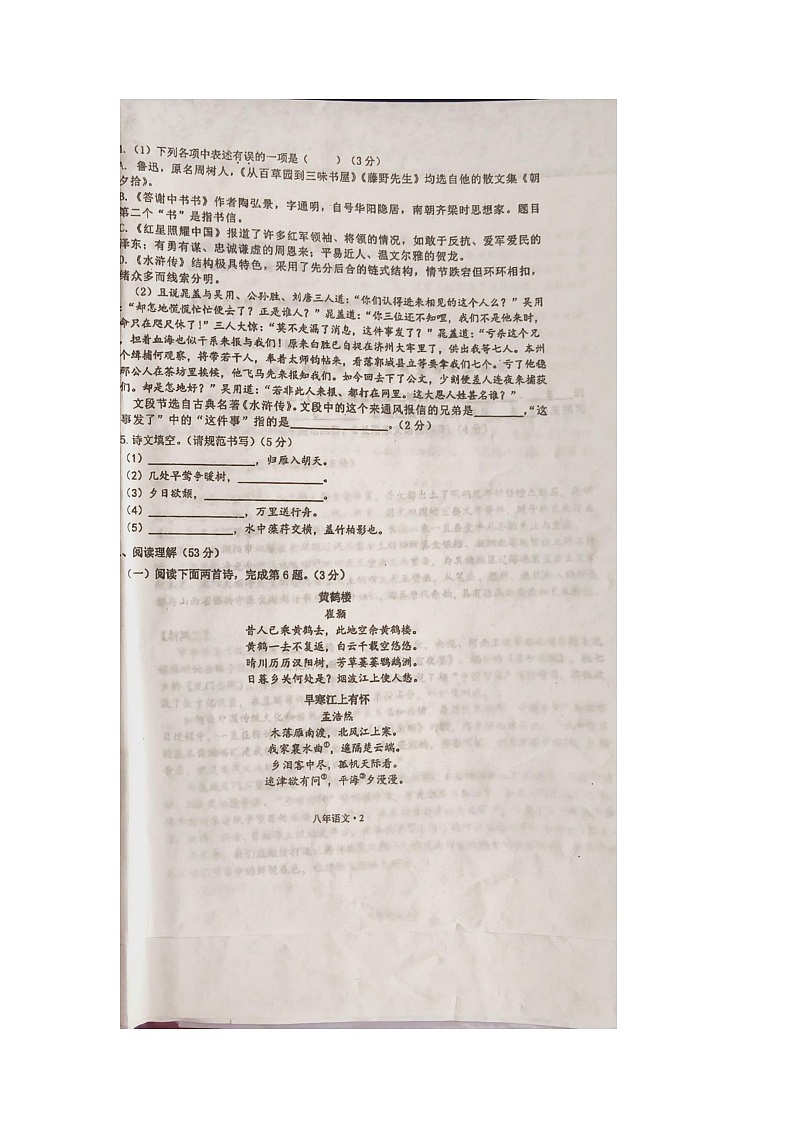 (1)下列各项中表述有误的一项是（　　）(3分)
A. 鲁迅，原名周树人，《从百草园到三味书屋》《藤野先生》均选自他的散文集《朝
夕拾》。
B.《答谢中书书》作者陶弘景，字通明，自号华阳隐居，南朝齐梁时思想家。题目
第二个“书”是指书信。
C.《红星照耀中国》报道了许多红军领袖、将领的情况，如敢于反抗、爱军爱民的
泽东；有勇有谋、忠诚谦虚的周恩来；平易近人、温文尔雅的贺龙。
D.《水浒传》结构极具特色，采用了先分后合的链式结构，情节跌宕但环环相扣，
绪众多而线索分明。
(2)且说晁盖与吴用、公孙胜、刘唐三人道：“你们认得适来相见的这个人么？”吴用
：“却怎地慌慌忙忙便去了？正是谁人？”晁盖道：“你三位还不知哩，我们不是他来时，
命只在咫尺休了！”三人大惊：“莫不走漏了消息，这件事发了？”晁盖道：“亏杀这个兄
，担着血海也似干系来报与我们！原来白胜已自捉在济州大牢里了，供出我等七人。本州
个缉捕何观察，将带若干人，奉着太师钧帖来，看落郓城县立等要拿我们七个。亏了他稳
那公人在茶坊里挨候，他飞马先来报知我们。如今回去下了公文，少刻便差人连夜来捕获
们。却是怎地好？”吴用道：“若非此人来报、都打在网里。这大恩人姓甚名谁？”
文段节选自古典名著《水浒传》。文段中的这个来通风报信的兄弟是________，“这
事发了”中的“这件事”指的是________________。(2分)
5.诗文填空。(请规范书写)(5分)
(1)________________，归雁入胡天。
(2)几处早莺争暖树，______________。
(3)夕日欲颓，____________________。
(4)________________，万里送行舟。
(5)______________，水中藻荇交横，盖竹柏影也。
、阅读理解(53分)
(一)阅读下面两首诗，完成第6题。(3分)
黄鹤楼
崔颢
昔人已乘黄鹤去，此地空余黄鹤楼。
黄鹤一去不复返，白云千载空悠悠。
晴川历历汉阳树，芳草萋萋鹦鹉洲。
日暮乡关何处是？烟波江上使人愁。
早寒江上有怀
孟浩然
木落雁南渡，北风江上寒。
我家襄水曲①，遥隔楚云端。
乡泪客中尽，孤帆天际看。
迷津欲有问②，平海③夕漫漫。
八年语文·2